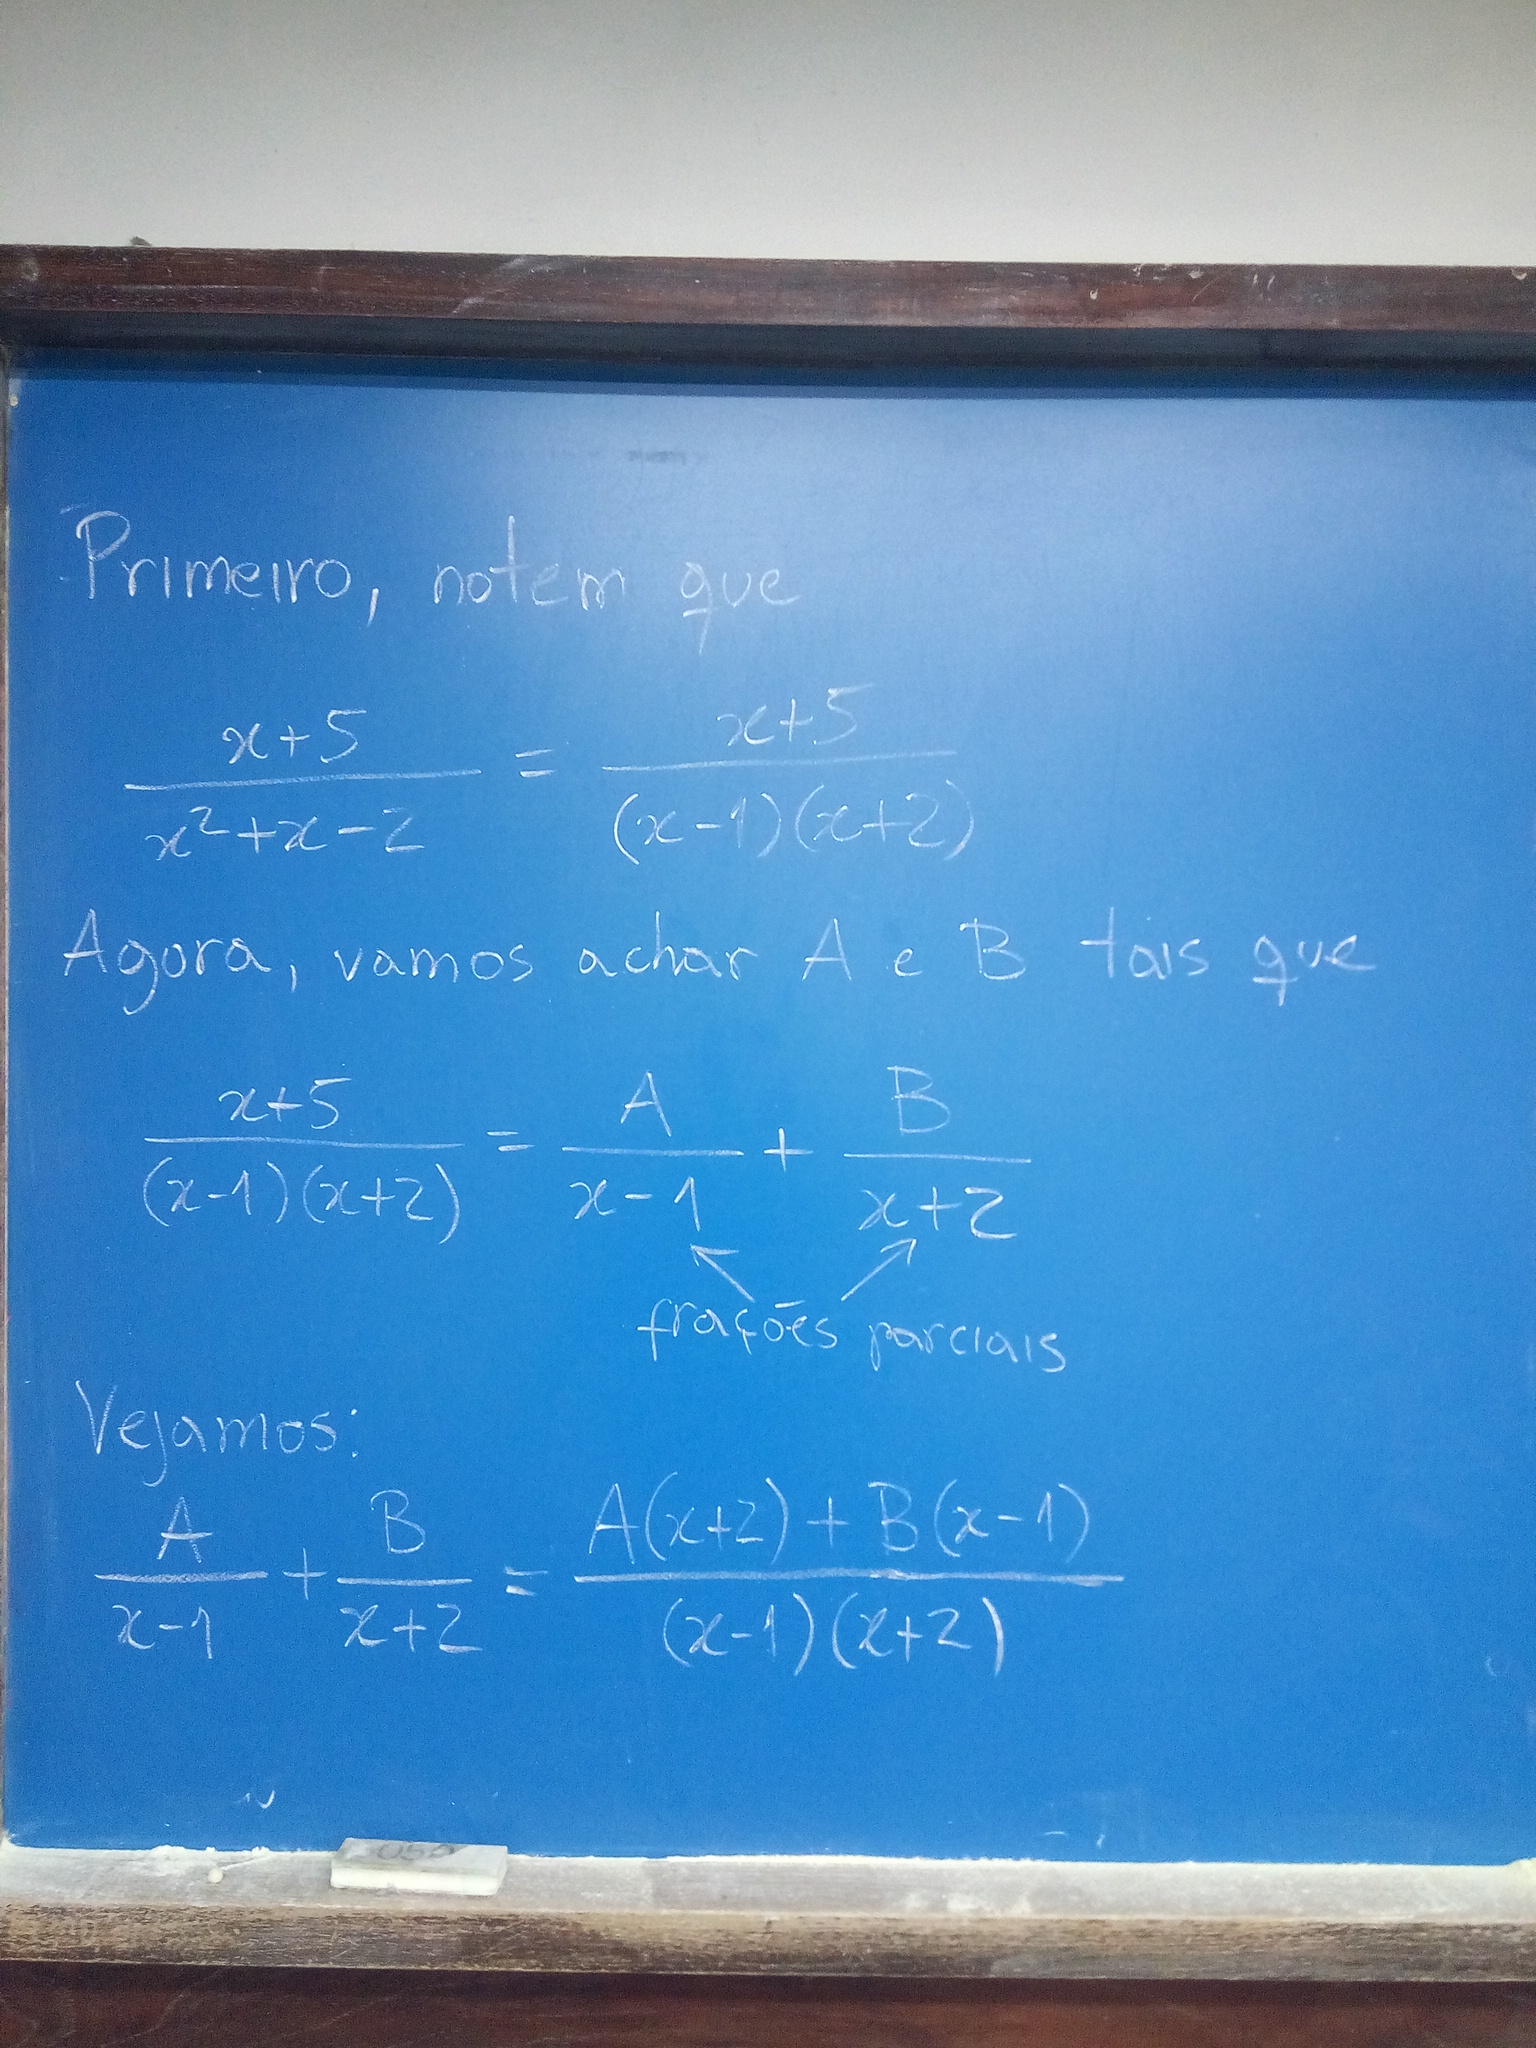 Primeiro, notem que
x+5 / x²+x-2 = x+5 / (x-1)(x+2)
Agora, vamos achar A e B tais que
x+5 / (x-1)(x+2) = A / x-1 + B / x+2
frações parciais
Vejamos:
A / x-1 + B / x+2 = A(x+2) + B(x-1) / (x-1)(x+2)